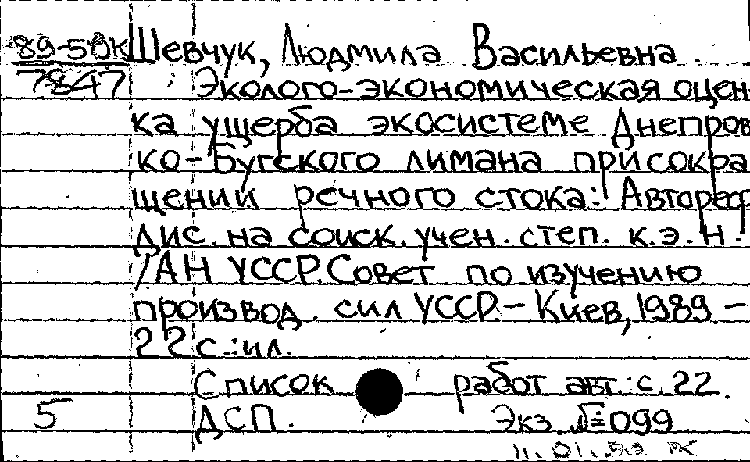 89-50К Шевчук, Людмила Васильевна
7847 Эколого-экономическая оцен-
ка ущерба экосистеме Днепров
ко-Бугского лимана при сокра
щении речного стока: Автореф
дис. на соиск. учен. степ. к.э.н.
/АН УССР. Совет по изучению
производ. сил УССР. - Киев, 1989 -
22 с.: ил.
Список работ авт.: с. 22.
5 ДСП. Экз. №099